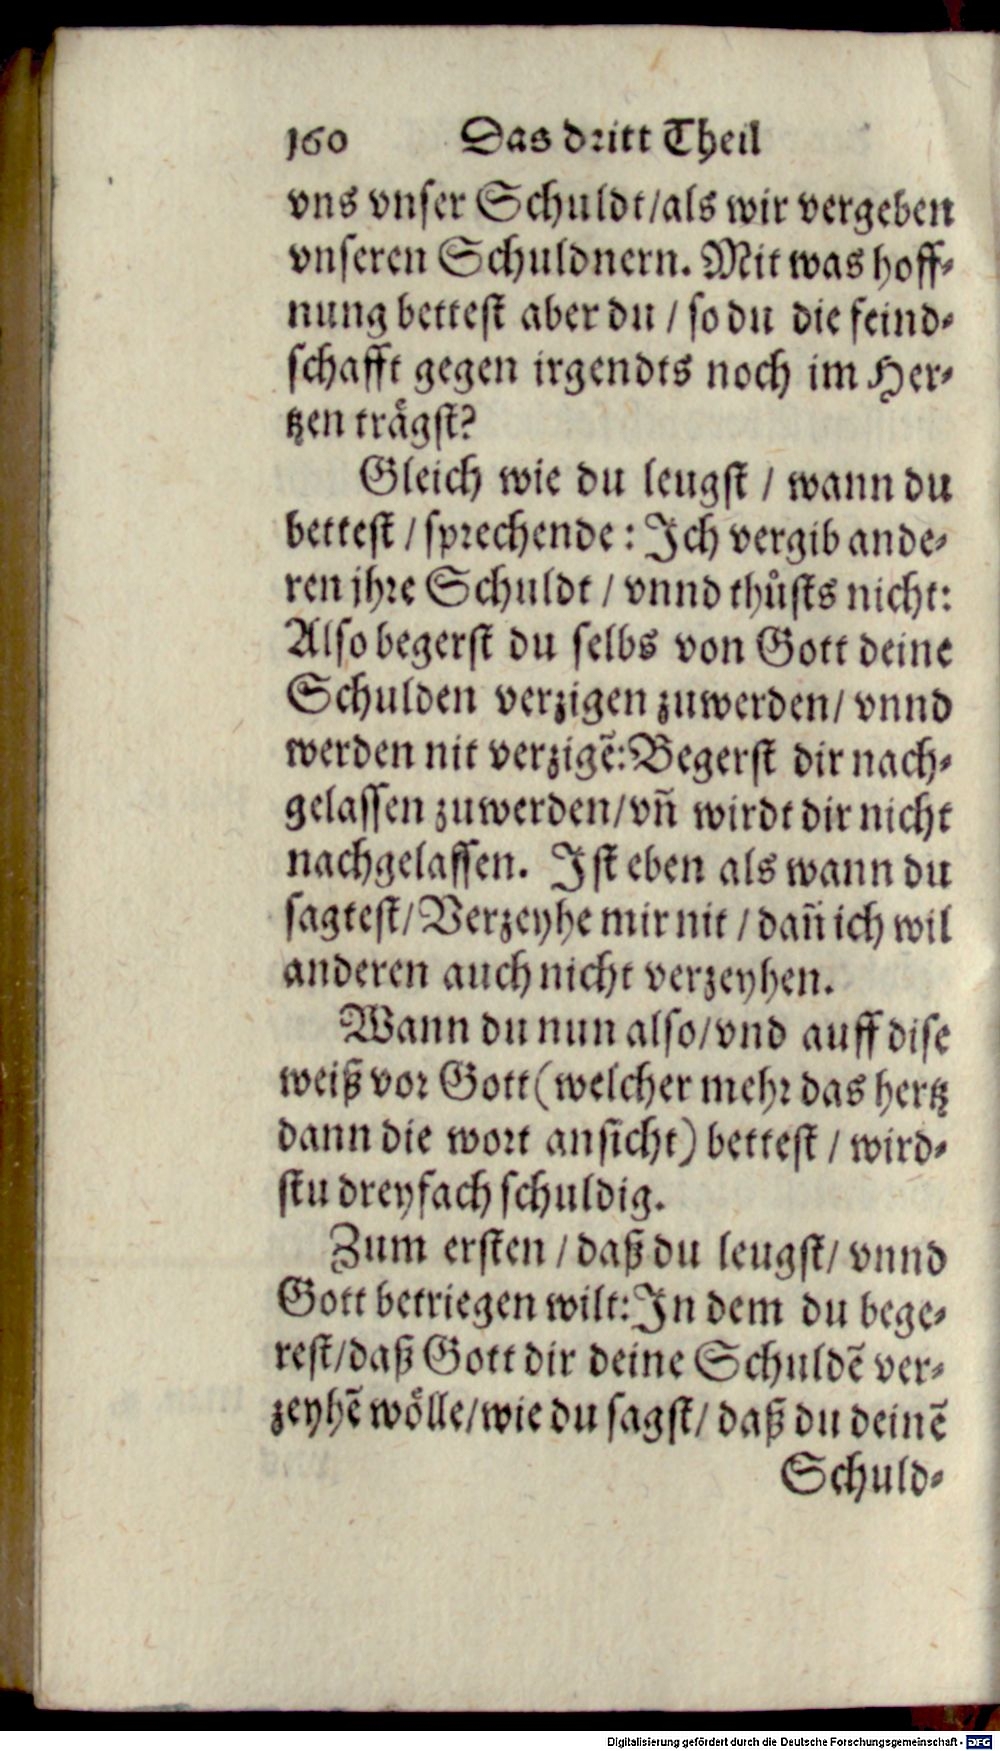 160 Das dritt Theil
vns vnser Schuldt/als wir vergeben
vnseren Schuldnern. Mit was hoff-
nung bettest aber du / so du die feind-
schafft gegen irgendts noch im Her-
tzen trågst?
Gleich wie du leugst / wann du
bettest / sprechende: Ich vergib ande-
ren jhre Schuldt / vnnd thůsts nicht:
Also begerst du selbs von Gott deine
Schulden verzigen zuwerden/ vnnd
werden nit verzigẽ: Begerst dir nach-
gelassen zuwerden/vñ wirdt dir nicht
nachgelassen. Ist eben als wann du
sagtest/ Verzeyhe mir nit / dañ ich wil
anderen auch nicht verzeyhen.
Wann du nun also/vnd auff dise
weiß vor Gott (welcher mehr das hertz
dann die wort ansicht) bettest / wird-
stu dreyfach schuldig.
Zum ersten / daß du leugst/ vnnd
Gott betriegen wilt: In dem du bege-
rest/daß Gott dir deine Schuldẽ ver-
zeyhẽ wölle/wie du sagst/ daß du deinẽ
Schuld-
Digitalisierung gefördert durch die Deutsche Forschungsgemeinschaft - DFG